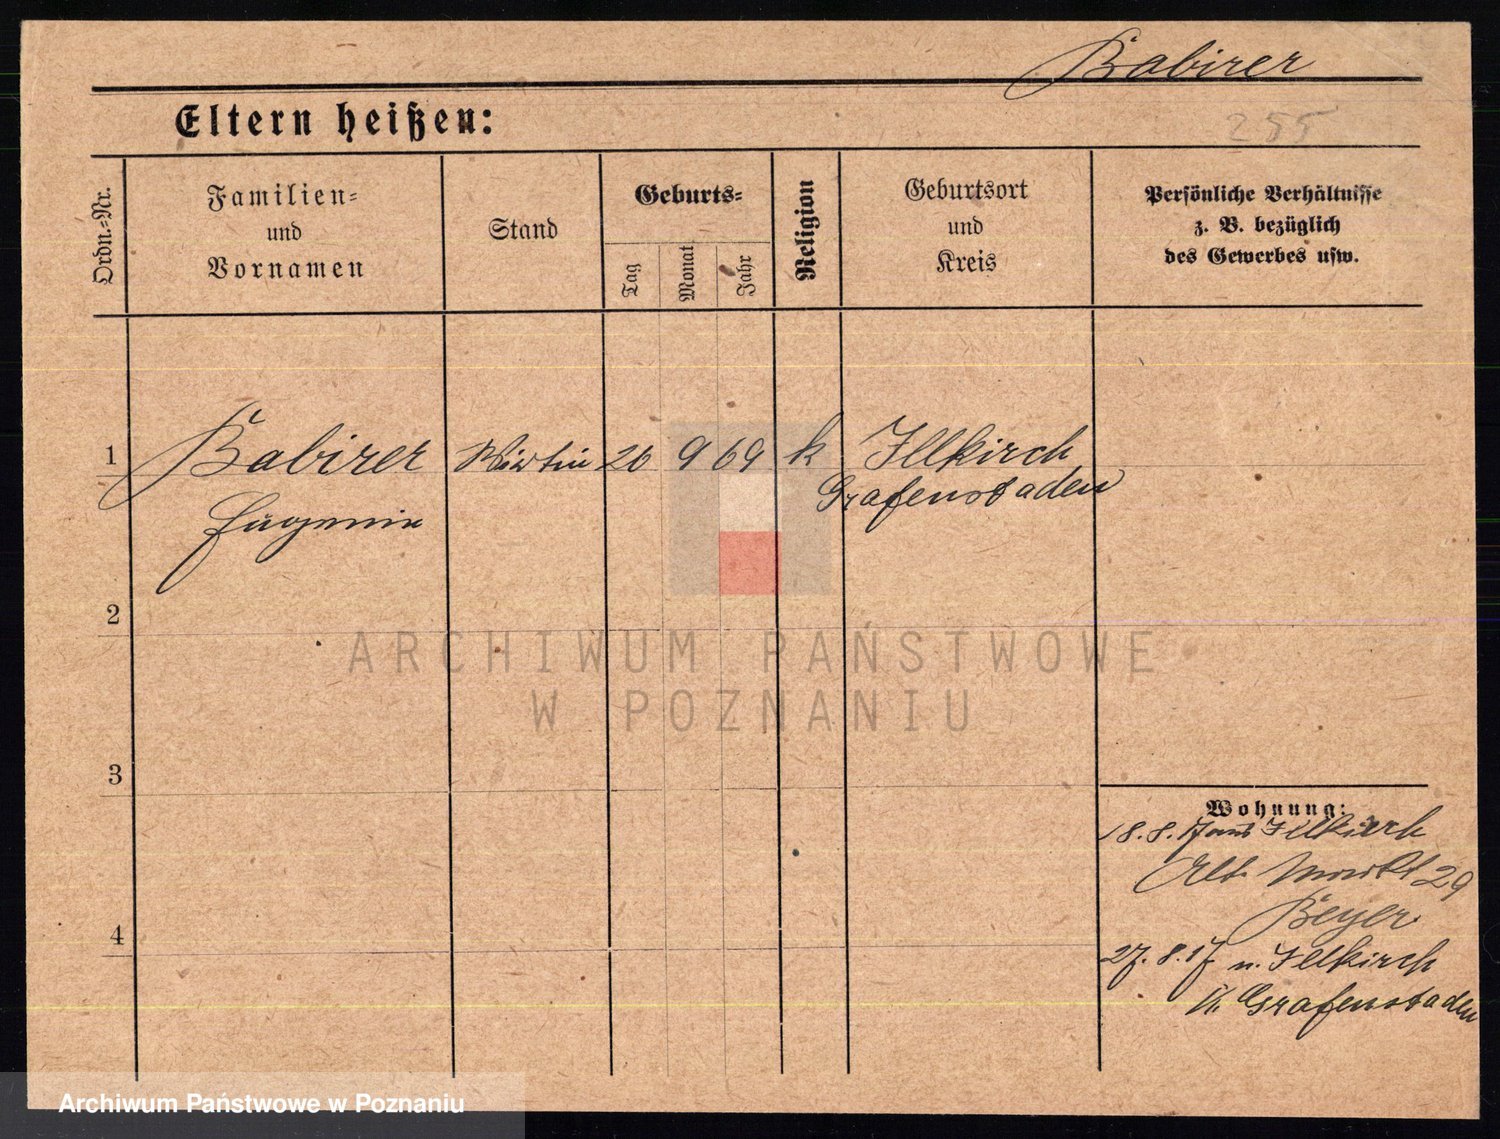 Babirer
Eltern heißen:
255
Ordn.-Nr.
Familien-
und
Vornamen
Stand
Geburts-
Tag
Monat
Jahr
Religion
Geburtsort
und
Kreis
Persönliche Verhältnisse
z. B. bezüglich
des Gewerbes usw.
1
Babirer
Eugenie
Wirtin
20
9
69
k
Illkirch
Grafenstaden
2
3
4
Wohnung:
18.8.17 aus Illkirch
Alt. Markt 29
Beyer
27.8.17 n. Illkirch
Grafenstaden
ARCHIWUM PAŃSTWOWE
W POZNANIU
Archiwum Państwowe w Poznaniu